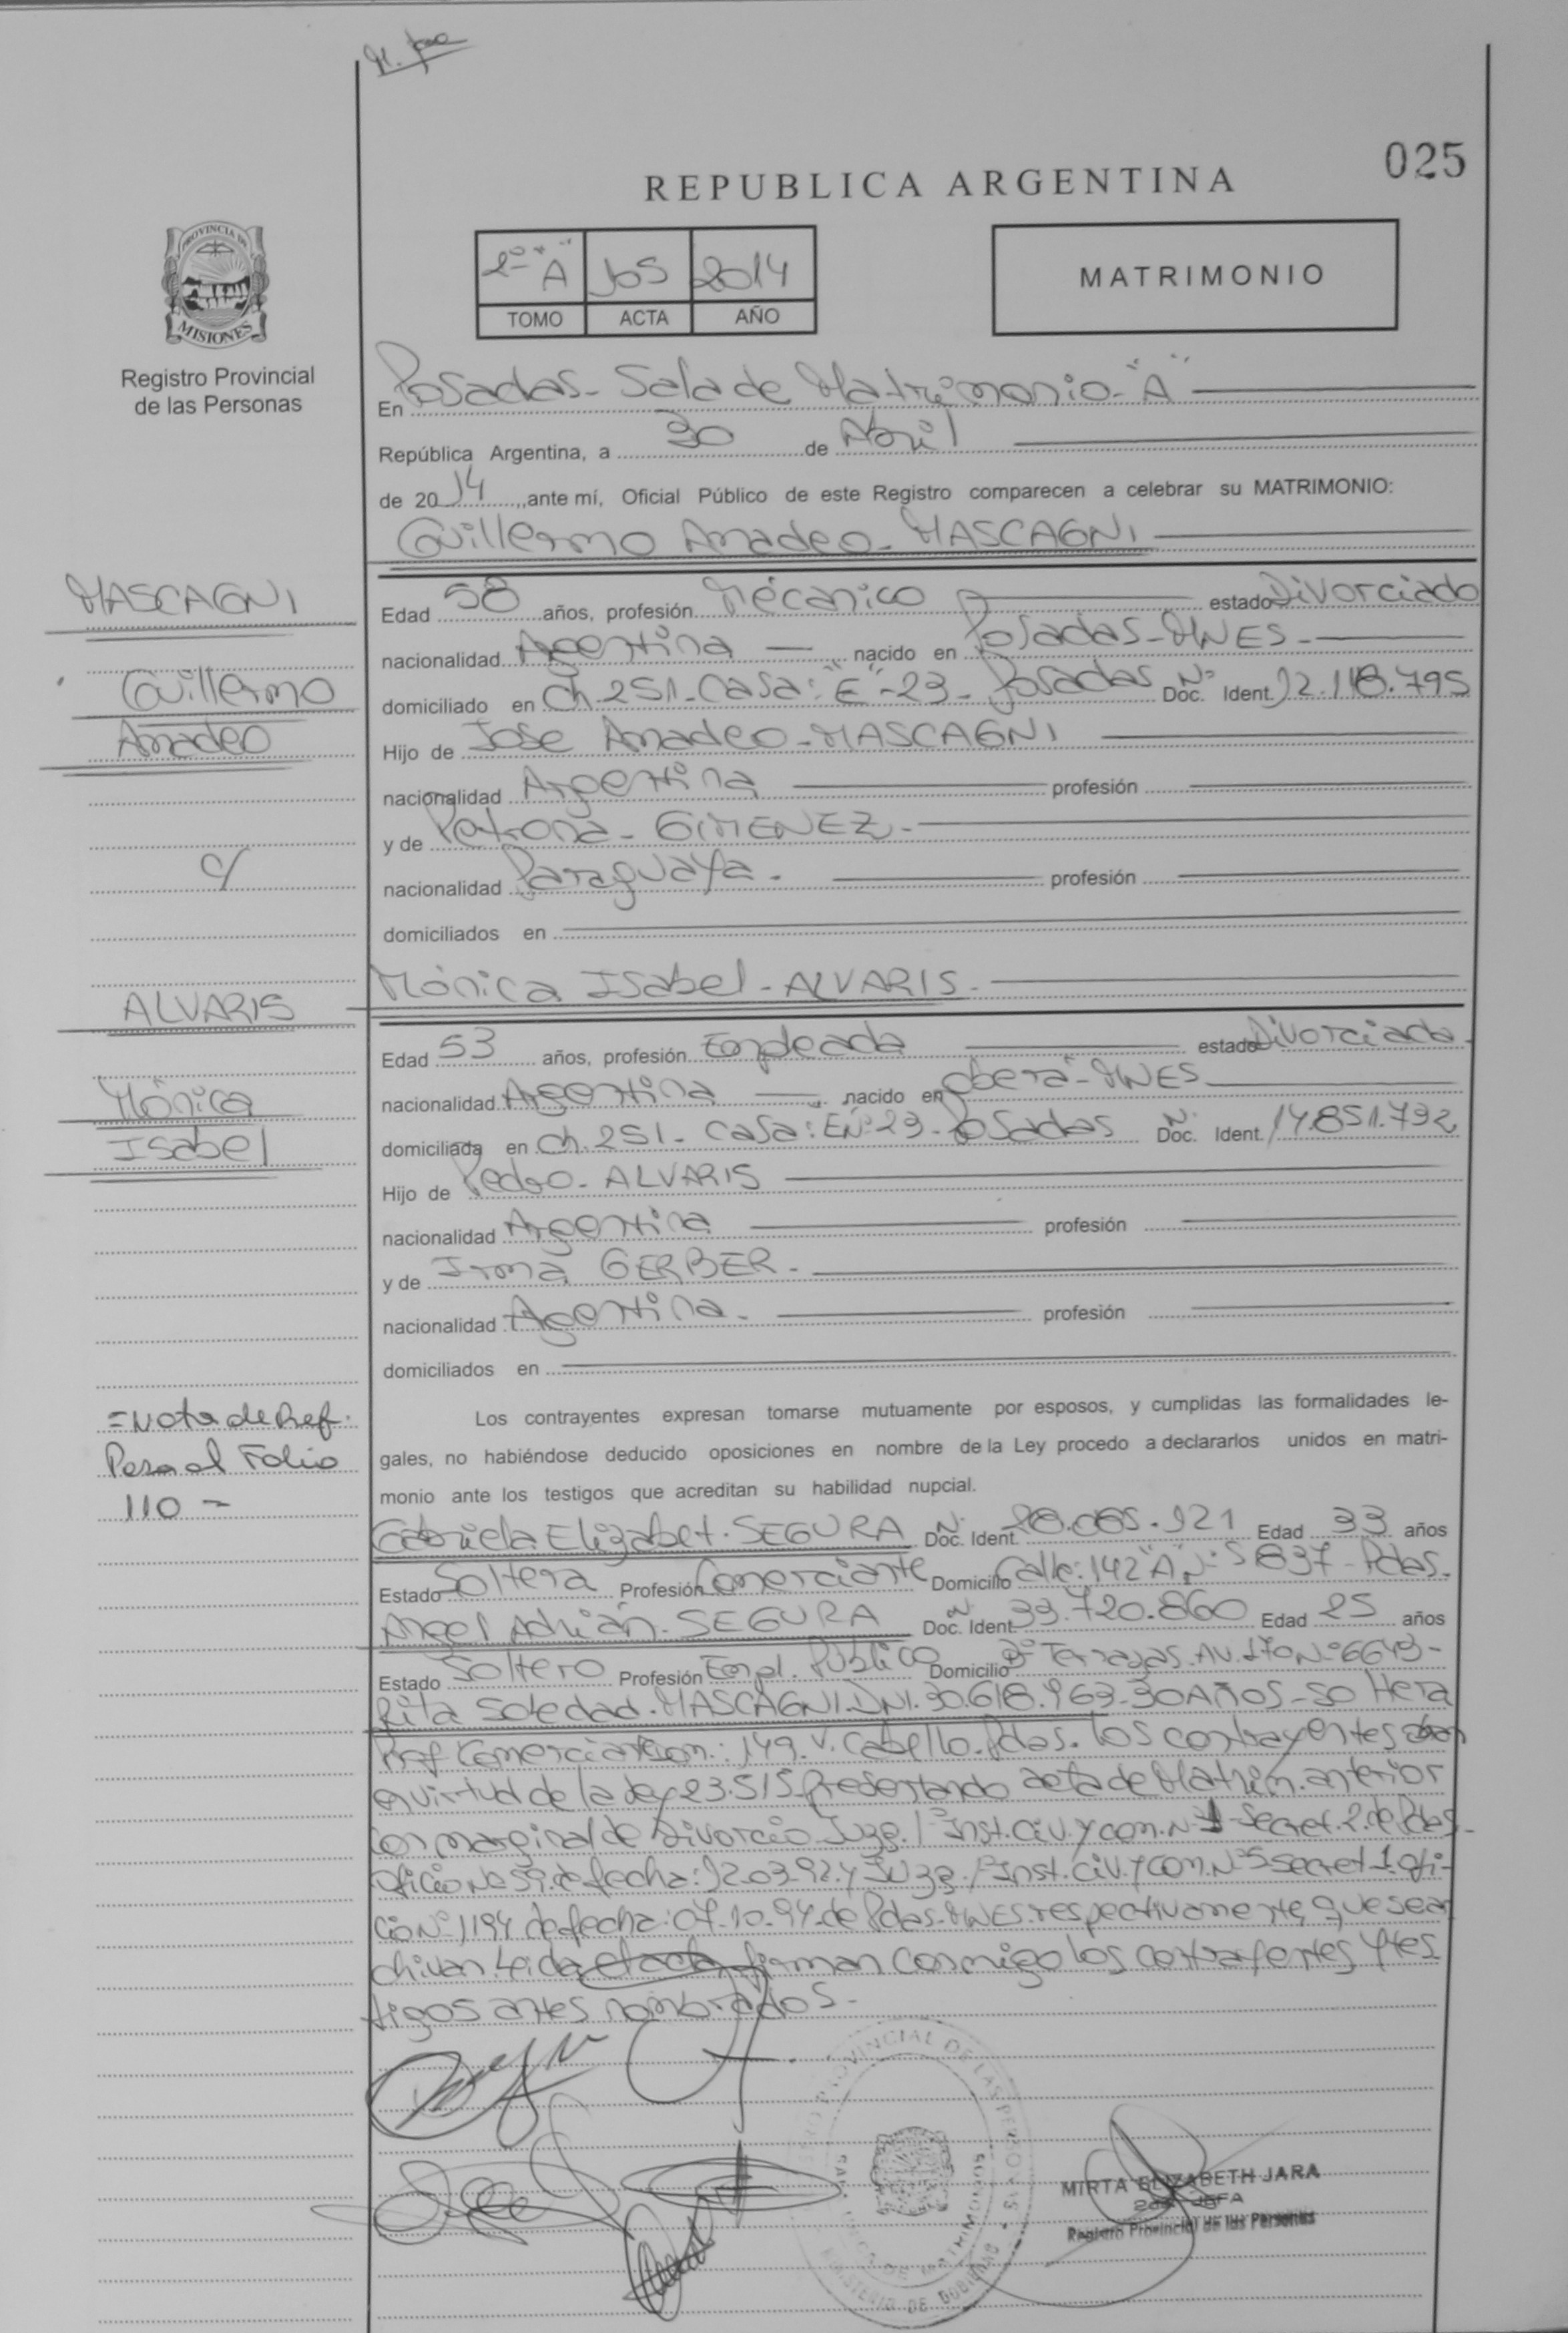 025
REPUBLICA ARGENTINA
PROVINCIA DE
MISIONES
Registro Provincial
de las Personas
2º "A" 105 2014
TOMO ACTA AÑO
MATRIMONIO
En Posadas - Sala de Matrimonio - "A"
República Argentina, a 30 de Abril
de 2014, ante mí, Oficial Público de este Registro comparecen a celebrar su MATRIMONIO:
Guillermo Amadeo - MASCAGNI
MASCAGNI
Guillermo
Amadeo
c/
ALVARIS
Mónica
Isabel
Edad 58 años, profesión Mécanico estado Divorciado
nacionalidad Argentina nacido en Posadas - MNES -
domiciliado en Ch. 251 - Casa: "E" - 23 - Posadas Doc. Nº Ident. 12.118.795
Hijo de José Amadeo - MASCAGNI
nacionalidad Argentina profesión
y de Petrona - GIMENEZ -
nacionalidad Paraguaya - profesión
domiciliados en
Mónica Isabel - ALVARIS -
Edad 53 años, profesión Empleada estado Divorciada -
nacionalidad Argentina nacido en Oberá - MNES
domiciliada en Ch. 251 - Casa: E Nº 23 - Posadas Doc. Nº Ident. 14.851.732
Hijo de Pedro - ALVARIS
nacionalidad Argentina profesión
y de Irma GERBER -
nacionalidad Argentina - profesión
domiciliados en
= Nota de Ref.
Pasa al Folio
110 -
Los contrayentes expresan tomarse mutuamente por esposos, y cumplidas las formalidades le-
gales, no habiéndose deducido oposiciones en nombre de la Ley procedo a declararlos unidos en matri-
monio ante los testigos que acreditan su habilidad nupcial.
Gabriela Elizabet - SEGURA Doc. Nº Ident. 28.085.921 Edad 33 años
Estado Soltera Profesión Comerciante Domicilio Calle: 142 "A" Nº 5837 - Pdas.
Angel Adrián - SEGURA Doc. Nº Ident. 33.720.860 Edad 25 años
Estado Soltero Profesión Empl. Público Domicilio Bº Terrazas. AV. 170 Nº 6643 -
Rita Soledad - MASCAGNI. DNI. 30.618.963 - 30 AÑOS - Soltera
Prof. Comerciante Dom. 149. V. Cabello. Pdas. Los contrayentes
en virtud de la Ley 23.515 Presentando acta de Matrim. anterior
con marginal de Divorcio Juzg. 1º Inst. Civ. y Com. Nº 1 - Secret. 2. de Pdas -
Oficio Nº 59. de fecha: 12.03.92. y Juzg. 1º Inst. Civ. y Com. Nº 5 Secret 1. ofi-
cio Nº 1194 de fecha: 07.10.94 de Pdas - MNES. respectivamente, que se ar
chivan. Leida el acta, firman conmigo los contrayentes y tes
tigos antes nombrados -
REGISTRO PROVINCIAL DE LAS PERSONAS
MINISTERIO DE GOBIERNO
MIRTA ELIZABETH JARA
2da. JEFA
Registro Provincial de las Personas